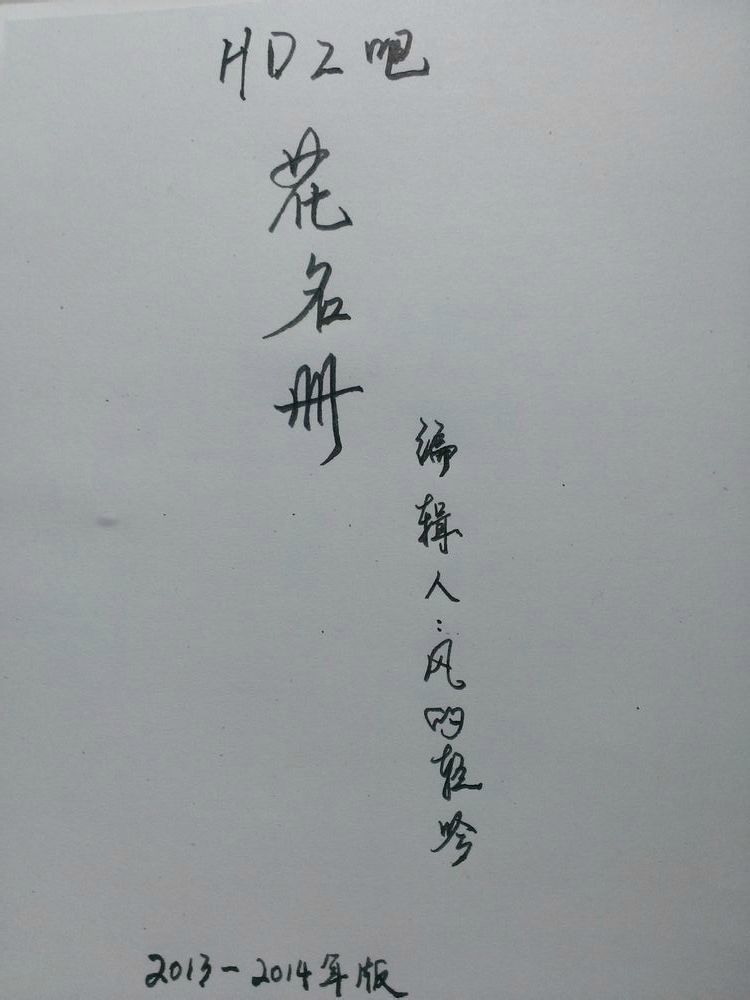 HD2吧
花名册
编辑人:风的轻吟
2013-2014年版